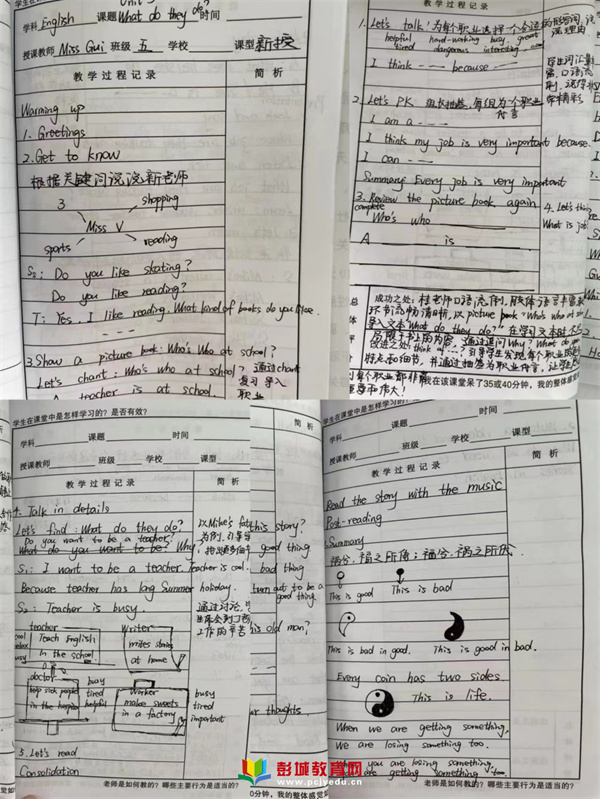 学生在
学科 English 课题 What do they do? 时间
授课教师 Miss Gui 班级 五 学校 课型 新授
教 学 过 程 记 录 简 析
Warming up
1. Greetings
2. Get to know
根据关键词说说新老师
3 shopping
Miss V
sports reading
S₂: Do you like skating?
Do you like reading?
T: Yes. I like reading. What kind of books do you like.
3 Show a picture book: Who's Who at school?
Let's chant: Who's who at school? 通过chant
复习 导入
A teacher is at school. 职业
教 学 过 程 记 录
1. Let's talk 为每个职业选择一个合适的形容词,说
说理由
helpful hard-working busy great
tired dangerous interesting cool
I think ---- because ----
2. Let's PK 每组为一个职业
I am a ----
I think my job is very important because
I can ----
Summary: Every job is very important
3. Review the picture book again
complete
4. Let's thin
Who's who
What is job
A is
总
成功之处:桂老师口语流利,肢体语言丰富
环节流畅清晰,以 picture book "Who's who at sc
导入文本 What do they do?" 在学习文本时
改进之处:
我在该课堂呆了35或40分钟,我的整体感觉
学生在课堂中是怎样学习的?是否有效?
学科 课题 时间
授课教师 班级 学校 课型
教 学 过 程 记 录 简 析
4. Talk in details
Let's find: What do they do?
Do you want to be a teacher?
What do you want to be? Why
以Mike's fat
为例,引导学
S₁: I want to be a teacher. Teacher is cool.
Because teacher has long Summer holiday.
S₂: Teacher is busy.
通过讨论,
工作的辛苦
teacher
cool
busy
Teach English
in the school
Writer
writes stories
at home
doctor
help sick people
in the hospital
busy
tired
helpful
Worker
make sweets
in a factory
busy
tired
important
5. Let's read
Consolidation
this story?
good thing
bad thing
turn out to be a
good thing.
his old man?
ur thoughts
0分钟,我的整体感觉
学生在课堂中是怎样学习的?是否有效?
学科 课题 时间
授课教师 班级 学校 课型
教 学 过 程 记 录 简 析
Read the story with the music
Post-reading
Summary
祸兮,福之所倚;福兮,祸之所伏.
This is good This is bad
This is bad in good. This is good in bad.
Every coin has two sides
This is life.
When we are getting something,
We are losing something too.
When you are losing something,
are getting something too.
老师是如何教的?哪些主要行为是适当的?
彭城教育网
www.pcjyedu.cn